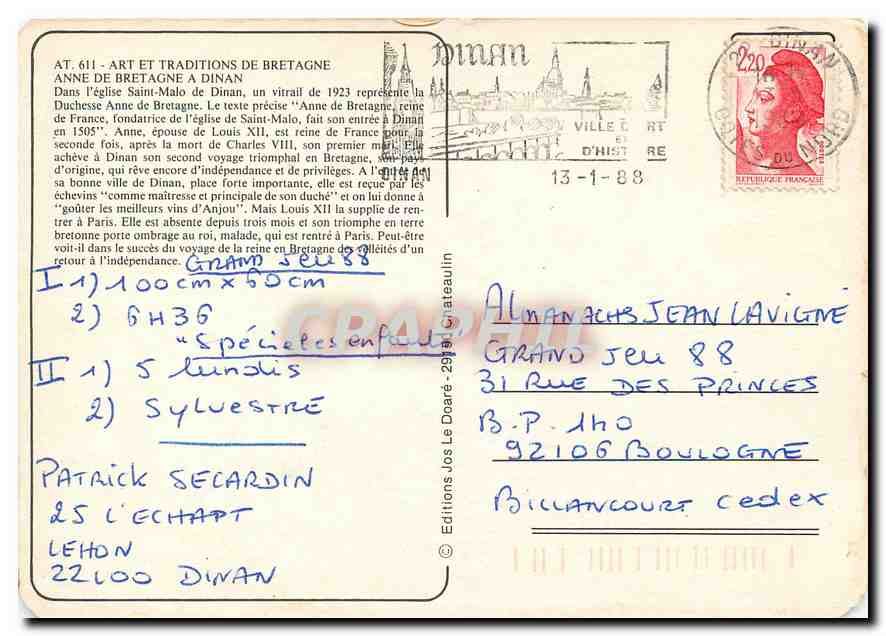 AT. 611 - ART ET TRADITIONS DE BRETAGNE
ANNE DE BRETAGNE A DINAN
Dans l'église Saint-Malo de Dinan, un vitrail de 1923 représente la
Duchesse Anne de Bretagne. Le texte précise "Anne de Bretagne, reine
de France, fondatrice de l'église de Saint-Malo, fait son entrée à Dinan
en 1505". Anne, épouse de Louis XII, est reine de France pour la
seconde fois, après la mort de Charles VIII, son premier mari. Elle
achève à Dinan son second voyage triomphal en Bretagne, son pays
d'origine, qui rêve encore d'indépendance et de privilèges. A l'entrée de
sa bonne ville de Dinan, place forte importante, elle est reçue par les
échevins "comme maîtresse et principale de son duché" et on lui donne à
"goûter les meilleurs vins d'Anjou". Mais Louis XII la supplie de ren-
trer à Paris. Elle est absente depuis trois mois et son triomphe en terre
bretonne porte ombrage au roi, malade, qui est rentré à Paris. Peut-être
voit-il dans le succès du voyage de la reine en Bretagne des velléités d'un
retour à l'indépendance.
GRAND Jeu 88
I 1) 100cm x 60cm
2) 6H36
"Spéciales enfants"
II 1) 5 lundis
2) SYLVESTRE
PATRICK SECARDIN
25 L'ECHAPT
LEHON
22100 DINAN
© Editions Jos Le Doaré - 29150 Chateaulin
DINAN
DINAN
VILLE D'ART
ET
D'HISTOIRE
13-1-88
DINAN
COTES DU NORD
2,20
REPUBLIQUE FRANÇAISE
ALMANACHS JEAN LAVIGNE
GRAND Jeu 88
31 RUE DES PRINCES
B.P. 140
92106 BOULOGNE
BILLANCOURT Cedex
CPAPHIL